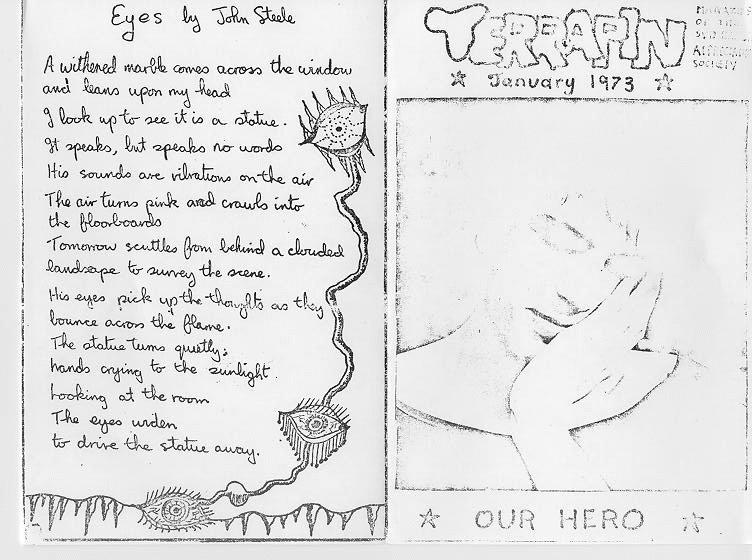 Eyes by John Steele
A withered marble comes across the window
and leans upon my head
I look up to see it is a statue.
It speaks, but speaks no words
His sounds are vibrations on the air
The air turns pink and crawls into
the floorboards
Tomorrow scuttles from behind a clouded
landscape to survey the scene.
His eyes pick up the thoughts as they
bounce across the flame.
The statue turns quietly;
hands crying to the sunlight.
Looking at the room
The eyes widen
to drive the statue away.
TERRAPIN
MAGAZINE
OF THE
SYD
SOCIETY
January 1973
OUR HERO